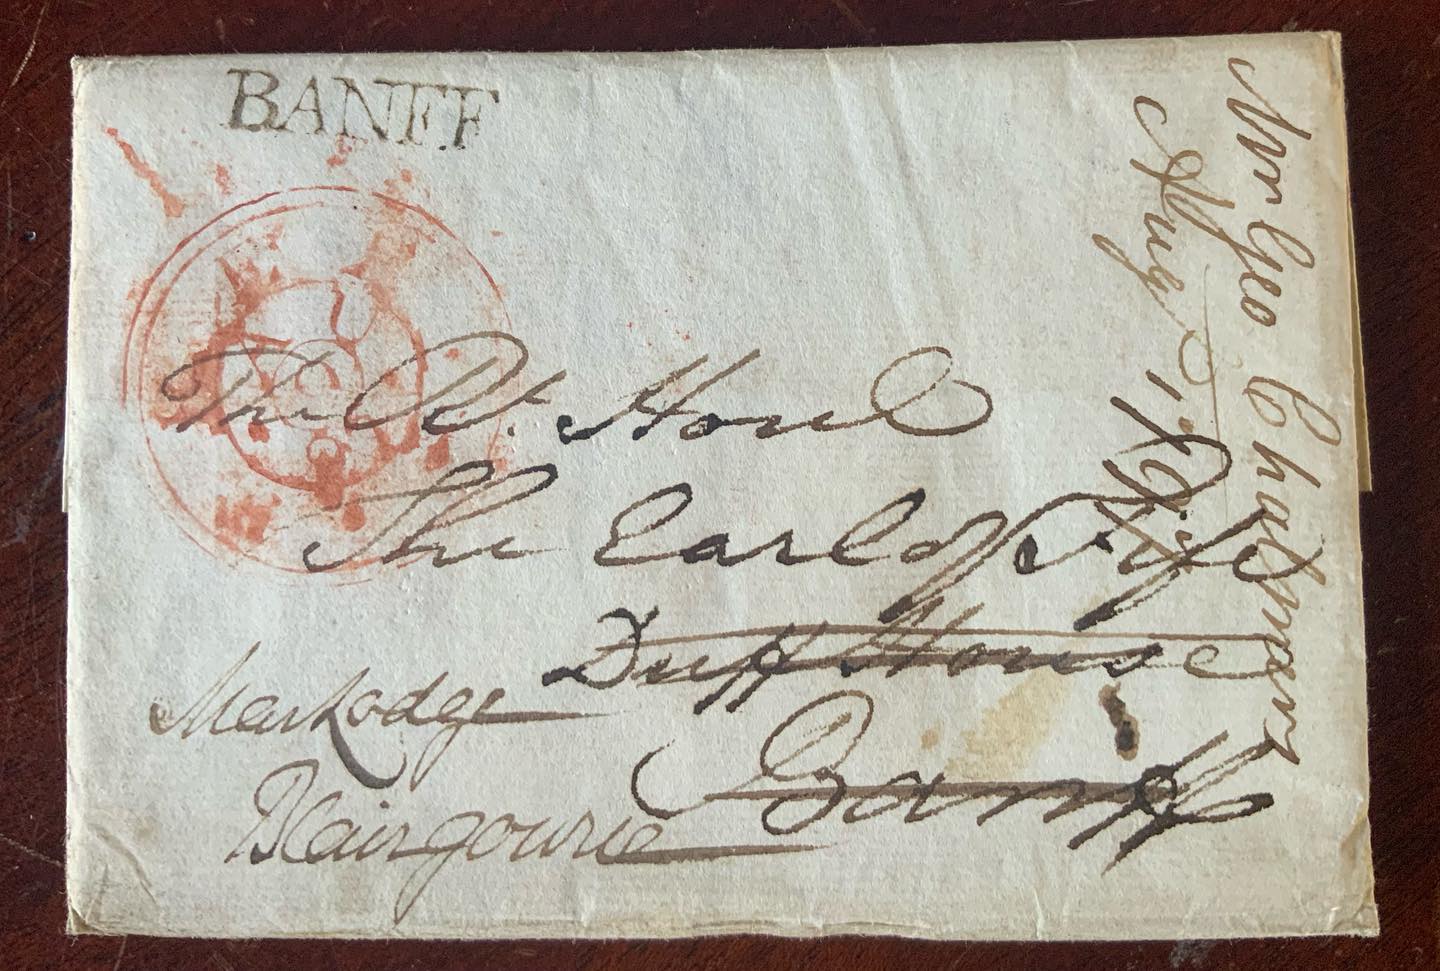 BANFF
The Rt. Honl
The Earl of Fife
Duff House
Banff
Mar Lodge
Blairgowrie
Mr Geo Chapman
Aug